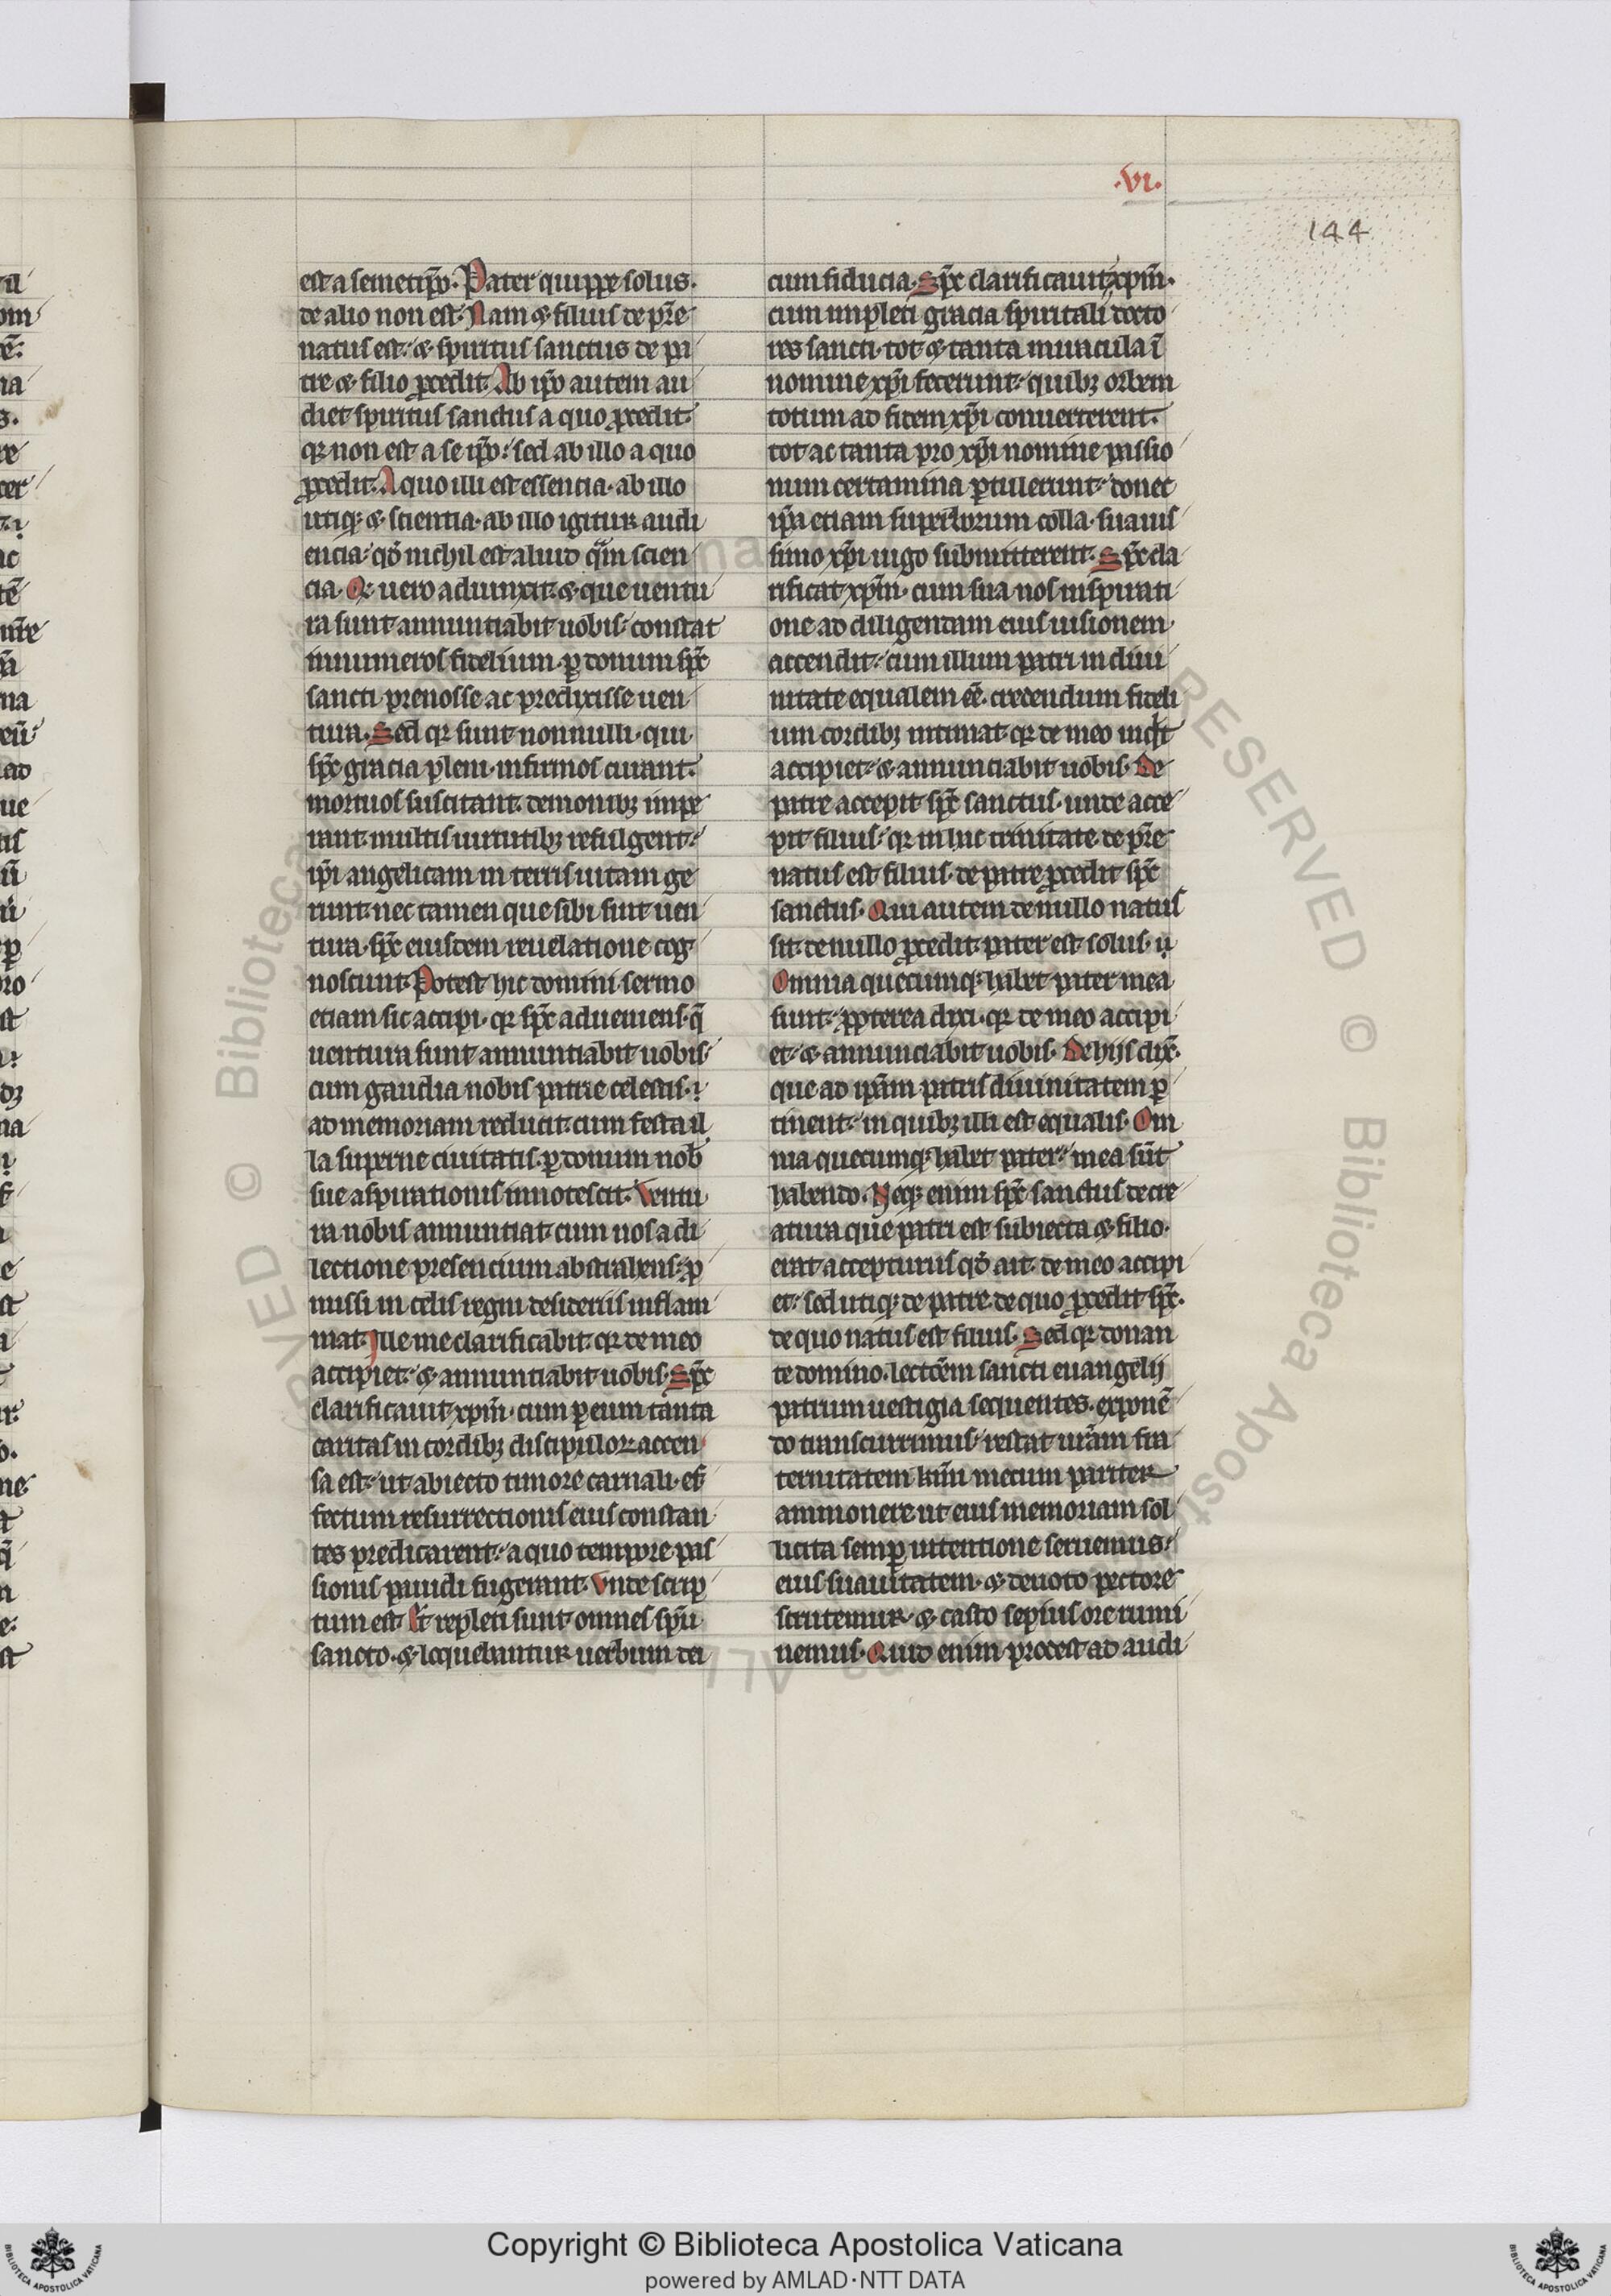 .VI.
144
est a semetip̄o. Pater quippe solus.
de alio non est. Nam & filius de pr̄e
natus est: & spiritus sanctus de pa
tre & filio ꝓcedit. Ab ip̄o autem au
diet spiritus sanctus a quo ꝓcedit.
qꝛ non est a se ip̄o: sed ab illo a quo
ꝓcedit. A quo illi est essencia. ab illo
utiqꝫ & scientia. ab illo igitur audi
encia: qđ nichil est aliud q̄m scien
cia. Qꝛ uero adiunxit. & que uentu
ra sunt annuntiabit uobis: constat
innumeros fidelium ꝑ donum sp̄c
sancti prenosse ac predixisse uen
tura. Sed qꝛ sunt nonnulli. qui
sp̄c gracia pleni. infirmos curant.
mortuos suscitant. demonibꝫ impe
rant. multis uirtutibꝫ refulgent:
ip̄i angelicam in terris uitam ge
runt. nec tamen que sibi sint uen
tura. sp̄c eiusdem reuelatione cog
noscunt. Potest hic domini sermo
etiam sic accipi. qꝛ sp̄c adueniens. q̄
uentura sunt annuntiabit uobis.
cum gaudia nobis patrie celestis.
ad memoriam reducit. cum festa il
la superne ciuitatis. ꝑ donum nob̄
sue aspirationis innotescit. Ventu
ra nobis annuntiat. cum nos a di
lectione presencium abstrahens: ꝓ
missi in celis regni desideriis inflam
mat. Ille me clarificabit. qꝛ de meo
accipiet: & annuntiabit uobis. Sp̄c
clarificauit xp̄m. cum ꝑ eum tanta
caritas in cordibꝫ discipuloꝝ accen
sa est. ut abiecto timore carnali. ef
fectum resurrectionis eius constan
tes predicarent: a quo tempore pas
sionis pauidi fugerant. Vnde scrip
tum est. Et repleti sunt omnes sp̄u
sancto. & loquebantur uerbum dei
cum fiducia. Sp̄c clarificauit xp̄m.
cum impleti gracia spiritali docto
res sancti. tot & tanta miracula ī
nomine xp̄i fecerunt. quibꝫ orbem
totum ad fidem xp̄i conuerterent.
tot ac tanta pro xp̄i nomine passio
num certamina ꝑtulerunt: donec
ip̄a etiam superborum colla. suauis
simo xp̄i iugo submitterent. Sp̄c cla
rificat xp̄m. cum sua nos inspirati
one ad diligendam eius uisionem
accendit: cum illum patri in diui
nitate equalem eē. credendum fideli
um cordibꝫ intimat. qꝛ de meo inqt
accipiet. & annunciabit uobis. De
patre accepit sp̄c sanctus. unde acce
pit filius. qꝛ in hac trinitate. de pr̄e
natus est filius. de patre ꝓcedit sp̄c
sanctus. Qui autem de nullo natus
sit. de nullo ꝓcedit. pater est solus.
Omnia quecumqꝫ habet pater mea
sunt. ꝓpterea dixi. qꝛ de meo accipi
et. & annunciabit uobis. De hijs dix̄.
que ad ip̄am patris diuinitatem ꝑ
tinent. in quibꝫ illi est equalis. Om
nia quecumqꝫ habet pater. mea sūt
habendo. Neqꝫ enim sp̄c sanctus de cre
atura que patri est subiecta & filio.
erat accepturus qđ ait. de meo accipi
et. sed utiqꝫ de patre. de quo ꝓcedit sp̄c.
de quo natus est filius. Sed qꝛ donan
te domino. lectōem sancti euangelij
patrum uestigia sequentes. exponē
do transcurrimus. restat ur̄am fra
ternitatem km̄i mecum pariter
ammonere ut eius memoriam sol
licita semꝑ intentione seruemus.
eius suauitatem. & deuoto pectore
scrutemur. & casto sepius ore rumi
nemus. Quid enim prodest ad audi
Copyright © Biblioteca Apostolica Vaticana
powered by AMLAD·NTT DATA